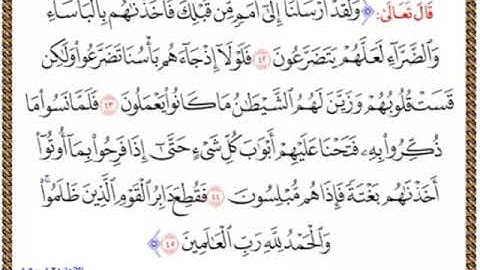 قَالَ تَعَالَى: ﴿وَلَقَدْ أَرْسَلْنَآ إِلَىٰٓ أُمَمٍ مِّن قَبْلِكَ فَأَخَذْنَٰهُم بِٱلْبَأْسَآءِ
وَٱلضَّرَّآءِ لَعَلَّهُمْ يَتَضَرَّعُونَ ٤٢ فَلَوْلَآ إِذْ جَآءَهُم بَأْسُنَا تَضَرَّعُوا۟ وَلَٰكِن
قَسَتْ قُلُوبُهُمْ وَزَيَّنَ لَهُمُ ٱلشَّيْطَٰنُ مَا كَانُوا۟ يَعْمَلُونَ ٤٣ فَلَمَّا نَسُوا۟ مَا
ذُكِّرُوا۟ بِهِۦ فَتَحْنَا عَلَيْهِمْ أَبْوَٰبَ كُلِّ شَىْءٍ حَتَّىٰٓ إِذَا فَرِحُوا۟ بِمَآ أُوتُوٓا۟
أَخَذْنَٰهُم بَغْتَةً فَإِذَا هُم مُّبْلِسُونَ ٤٤ فَقُطِعَ دَابِرُ ٱلْقَوْمِ ٱلَّذِينَ ظَلَمُوا۟ ۚ
وَٱلْحَمْدُ لِلَّهِ رَبِّ ٱلْعَٰلَمِينَ ٤٥﴾